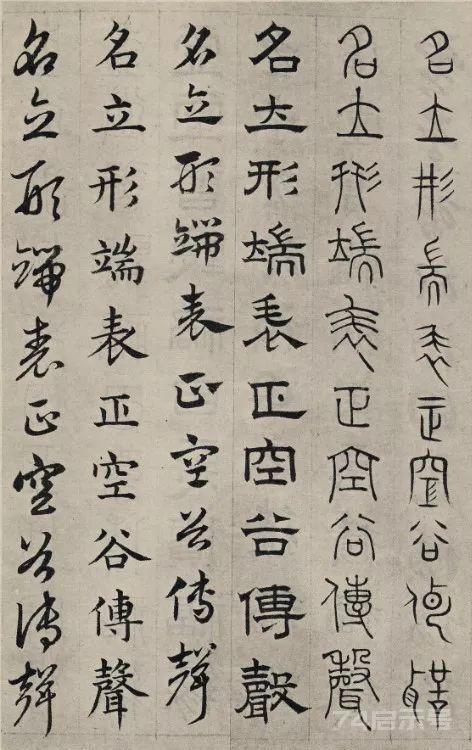 名立形端表正空谷傳聲
名立形端表正空谷傳聲
名立形端表正空谷傳聲
名立形端表正空谷傳聲
名立形端表正空谷傳聲
名立形端表正空谷傳聲
74启示号